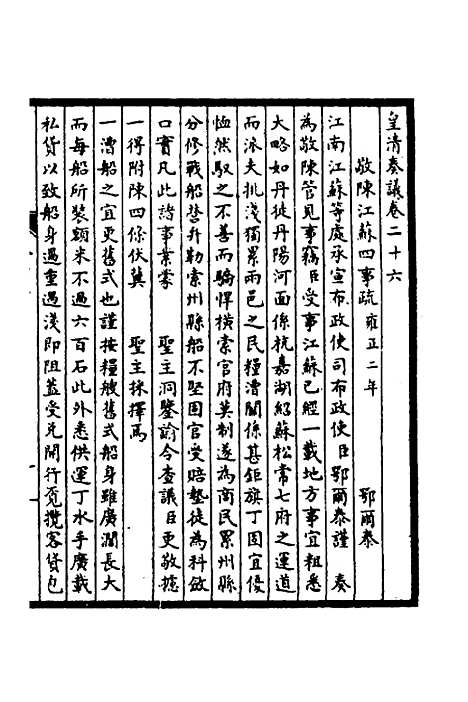 皇清奏議卷二十六
敬陳江蘇四事疏 雍正二年 鄂爾泰
江南江蘇等處承宣布政使司布政使臣鄂爾泰謹 奏
為敬陳管見事竊臣受事江蘇已經一載地方事宜粗悉
大略如丹徒丹陽河面係杭嘉湖紹蘇松常七府之運道
而派夫挑淺獨累兩邑之民糧漕關係甚鉅旗丁固宜優
恤然馭之不善而驕悍橫索官府莫制遂為商民累州縣
分修戰船營弁勒索州縣船不堅固官受賠墊徒為科斂
口實凡此諸事業蒙 聖主洞鑒諭令查議臣更敬攄
一得附陳四條伏冀 聖主採擇焉
一漕船之宜更舊式也謹按糧艘舊式船身雖廣濶長大
而每船所裝額米不過六百石此外悉供運丁水手廣載
私貨以致船身過重遇淺即阻蓋受兌開行覓攬客貨包